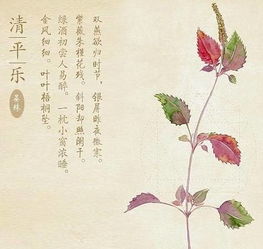 清平乐
晏殊
金风细细。叶叶梧桐坠。
绿酒初尝人易醉。一枕小窗浓睡。
紫薇朱槿花残。斜阳却照阑干。
双燕欲归时节。银屏昨夜微寒。